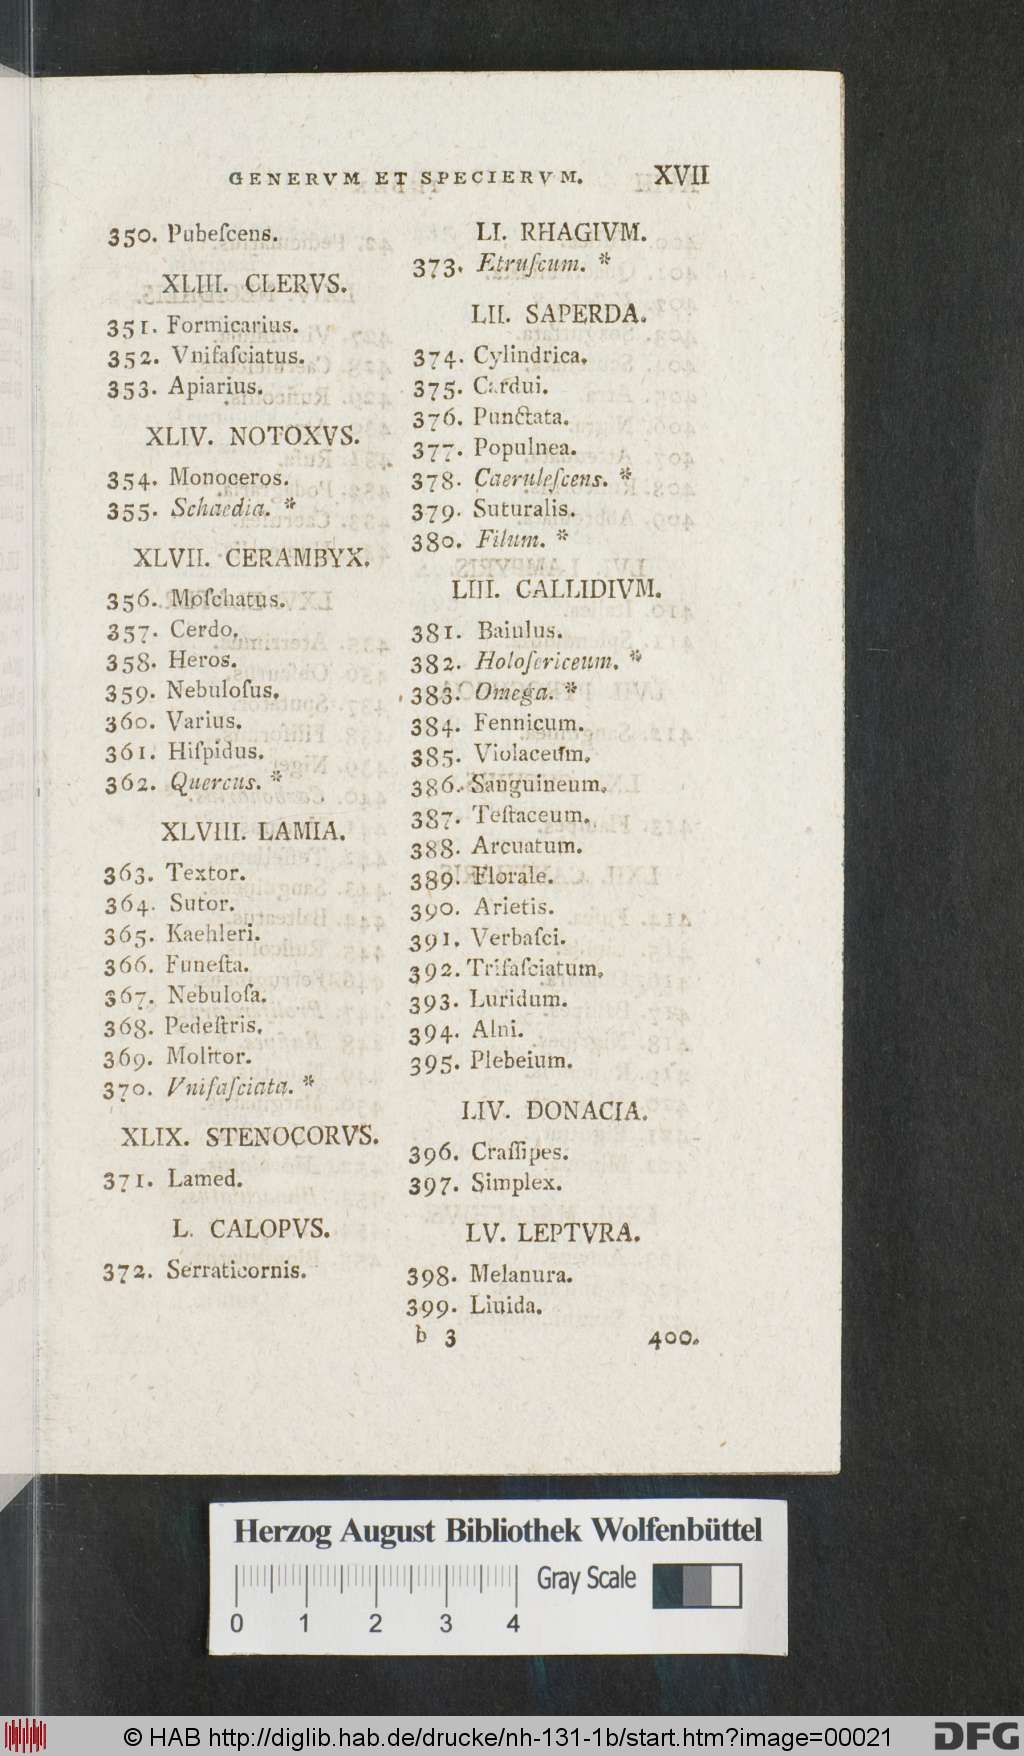 GENERVM ET SPECIERVM. XVII
350. Pubeſcens.
XLIII. CLERVS.
351. Formicarius.
352. Vnifaſciatus.
353. Apiarius.
XLIV. NOTOXVS.
354. Monoceros.
355. Schaedia. *
XLVII. CERAMBYX.
356. Moſchatus.
357. Cerdo.
358. Heros.
359. Nebuloſus.
360. Varius.
361. Hiſpidus.
362. Quercus. *
XLVIII. LAMIA.
363. Textor.
364. Sutor.
365. Kaehleri.
366. Funeſta.
367. Nebuloſa.
368. Pedeſtris.
369. Molitor.
370. Vnifaſciata. *
XLIX. STENOCORVS.
371. Lamed.
L. CALOPVS.
372. Serraticornis.
LI. RHAGIVM.
373. Etruſcum. *
LII. SAPERDA.
374. Cylindrica.
375. Cardui.
376. Punctata.
377. Populnea.
378. Caeruleſcens. *
379. Suturalis.
380. Filum. *
LIII. CALLIDIVM.
381. Baiulus.
382. Holoſericeum. *
383. Omega. *
384. Fennicum.
385. Violaceum.
386. Sanguineum.
387. Teſtaceum.
388. Arcuatum.
389. Florale.
390. Arietis.
391. Verbaſci.
392. Trifaſciatum.
393. Luridum.
394. Alni.
395. Plebeium.
LIV. DONACIA.
396. Craſſipes.
397. Simplex.
LV. LEPTVRA.
398. Melanura.
399. Liuida.
b 3 400.
Herzog August Bibliothek Wolfenbüttel
Gray Scale
0 1 2 3 4
© HAB http://diglib.hab.de/drucke/nh-131-1b/start.htm?image=00021
DFG